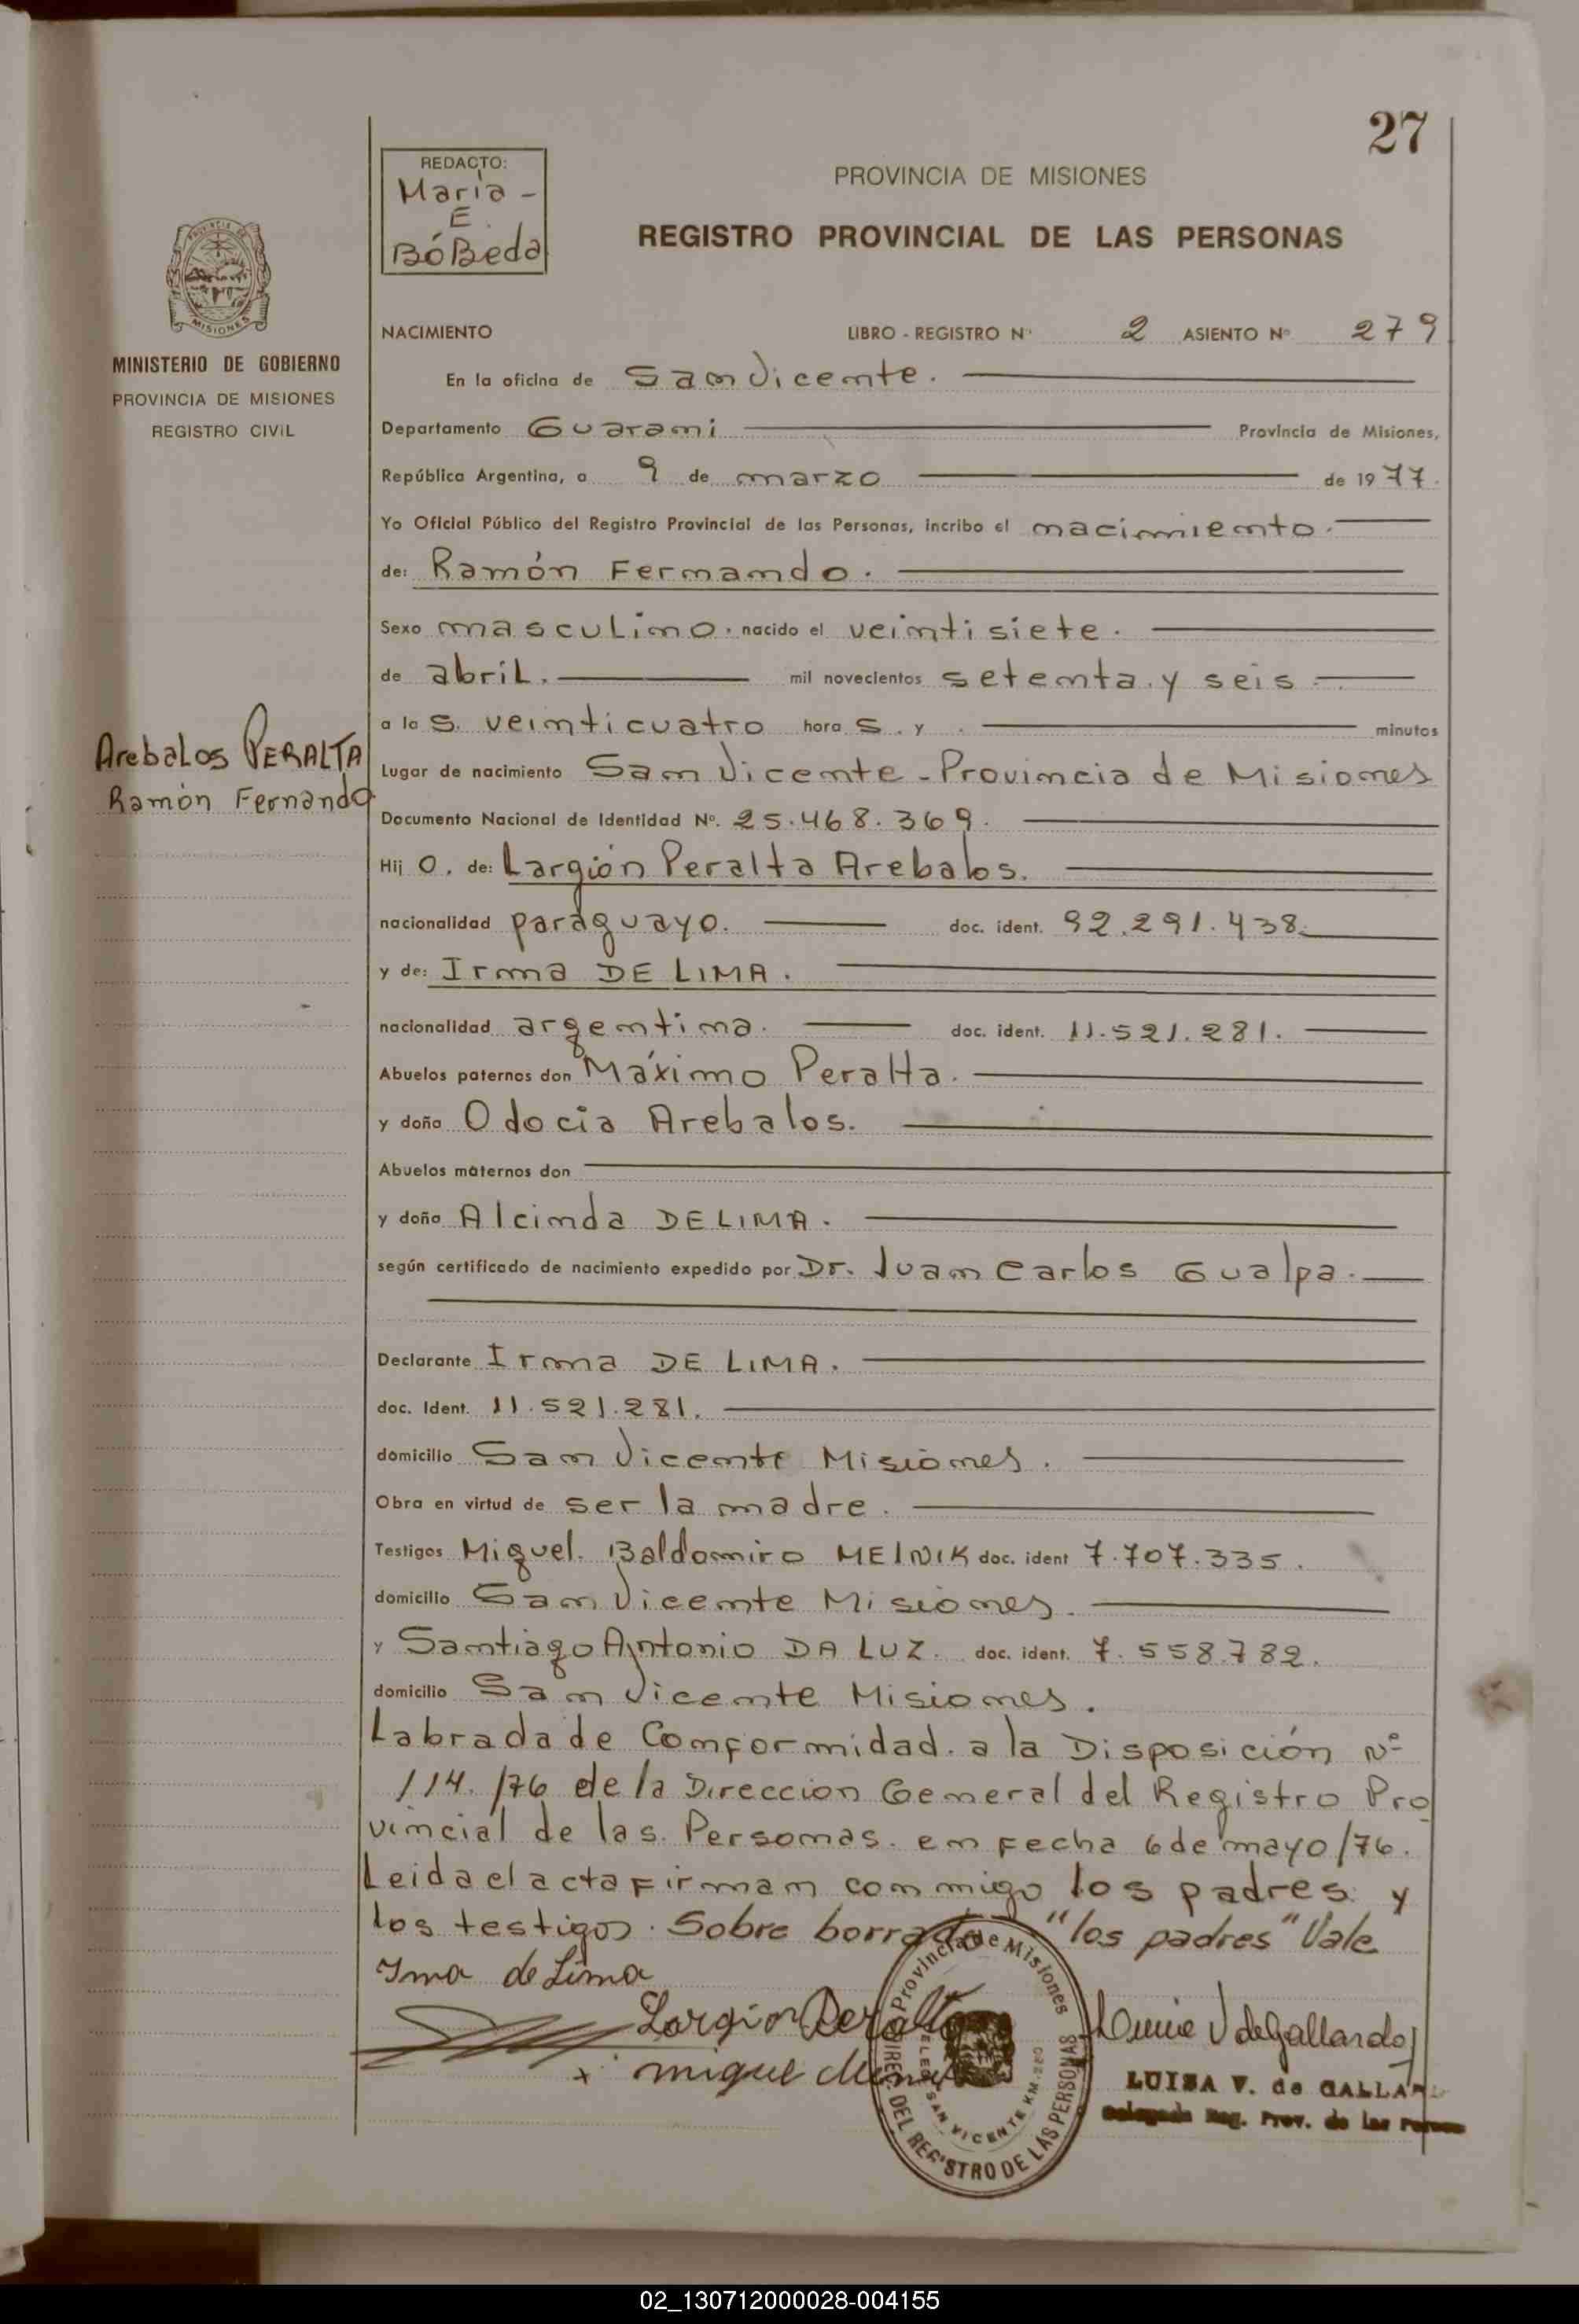 27
REDACTO:
María -
E.
BóBeda
PROVINCIA DE MISIONES
REGISTRO PROVINCIAL DE LAS PERSONAS
PROVINCIA DE
MISIONES
MINISTERIO DE GOBIERNO
PROVINCIA DE MISIONES
REGISTRO CIVIL
NACIMIENTO LIBRO - REGISTRO Nº 2 ASIENTO Nº 279
En la oficina de San Vicente.
Departamento Guarani Provincia de Misiones,
República Argentina, a 9 de marzo de 1977.
Yo Oficial Público del Registro Provincial de las Personas, incribo el nacimiento.
de: Ramón Fernando.
Sexo masculino. nacido el veintisiete.
de abril. mil novecientos setenta y seis
a las. veinticuatro horas. y minutos
Arebalos PERALTA
Ramón Fernando
Lugar de nacimiento San Vicente - Provincia de Misiones
Documento Nacional de Identidad Nº. 25.468.369.
Hijo. de: Largión Peralta Arebalos.
nacionalidad paraguayo. doc. ident. 92.291.438.
y de: Irma DE LIMA.
nacionalidad argentina. doc. ident. 11.521.281.
Abuelos paternos don Máximo Peralta.
y doña Odocia Arebalos.
Abuelos maternos don
y doña Alcinda DE LIMA.
según certificado de nacimiento expedido por Dr. Juan Carlos Gualpa.
Declarante Irma DE LIMA.
doc. Ident. 11.521.281.
domicilio San Vicente Misiones.
Obra en virtud de ser la madre.
Testigos Miguel. Baldomiro MElNIK doc. ident 7.707.335.
domicilio San Vicente Misiones.
y Santiago Antonio DA LUZ. doc. ident. 7.558.782.
domicilio San Vicente Misiones.
Labrada de Conformidad. a la Disposición Nº
114./76 de la Direccion General del Registro Pro
vincial de las. Personas. en Fecha 6 de mayo/76.
Leida el acta Firman conmigo los padres y
los testigos. Sobre borrado "los padres" Vale
Irma de Lima
Largion Peralta
x miguel
Provincia de Misiones
DIREC. DEL REGISTRO DE LAS PERSONAS
SAN VICENTE KM.
V de Gallardo
LUISA V. de GALLAR
Delegada Reg. Prov. de las Personas
02_130712000028-004155